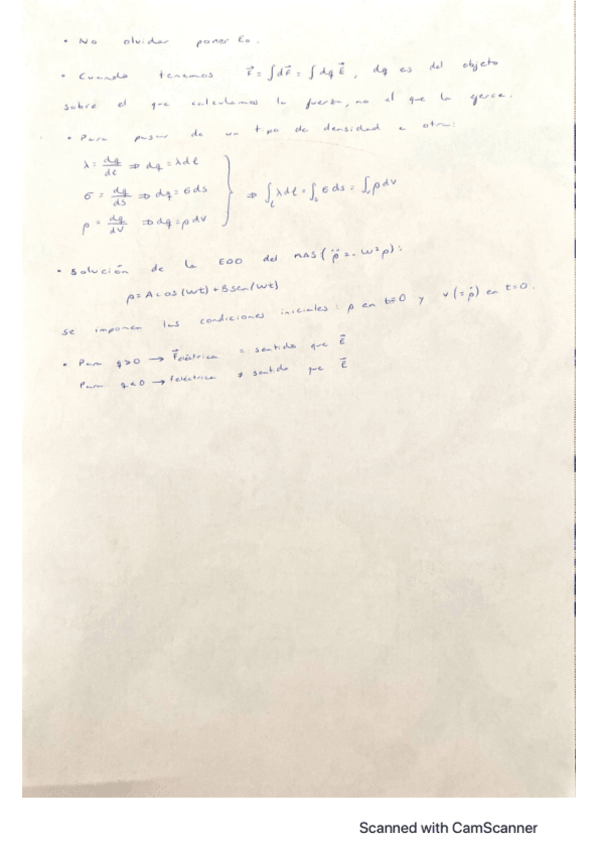 • No olvidar poner ε₀.
• Cuando tenemos F⃗ = ∫dF⃗ = ∫dq E⃗, dq es del objeto
sobre el que calculamos la fuerza, no el que la ejerce.
• Para pasar de un tipo de densidad a otra:
λ = dq/dl ⇒ dq = λdl
σ = dq/ds ⇒ dq = σds } ⇒ ∫_L λdl = ∫_S σds = ∫_V ρdv
ρ = dq/dv ⇒ dq = ρdv
• Solución de la EDO del MAS (p̈ = -w²p):
p = A cos(wt) + B sen(wt)
Se imponen las condiciones iniciales: p en t=0 y v(=ṗ) en t=0.
• Para q>0 → F⃗eléctrica = sentido que E⃗
Para q<0 → Feléctrica ≠ sentido que E⃗
Scanned with CamScanner